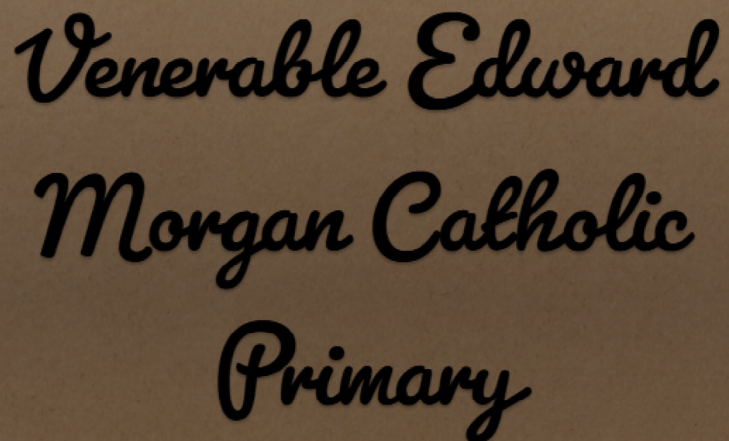 Venerable Edward
Morgan Catholic
Primary